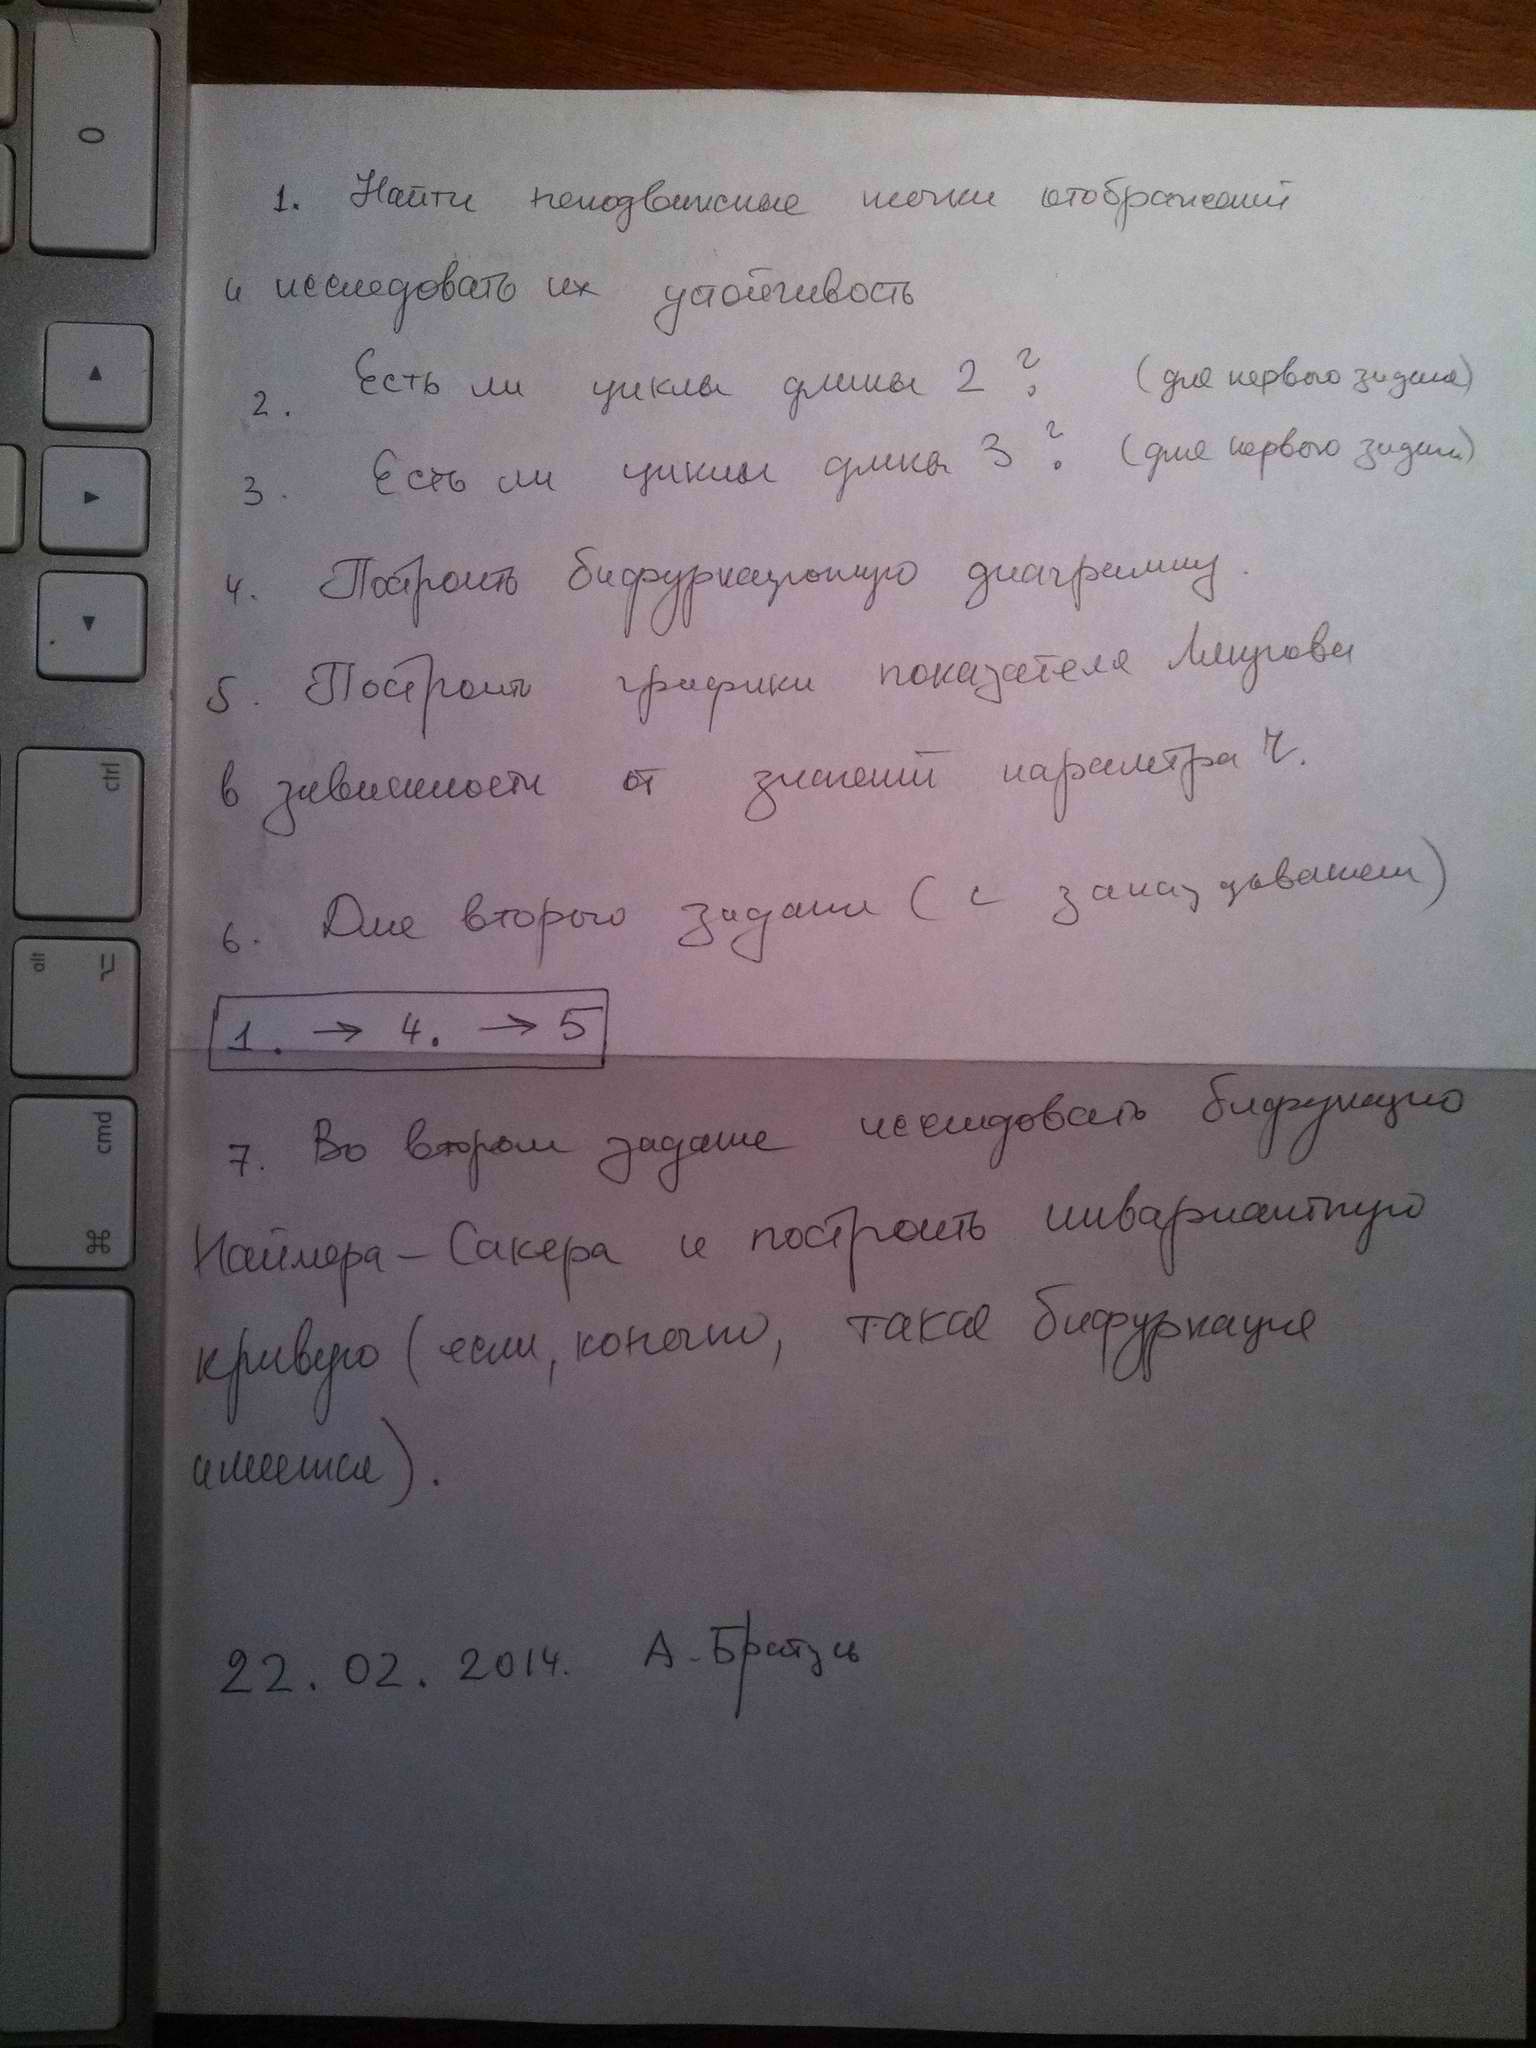 0
ctrl
alt
cmd
1. Найти неподвижные точки отображений
и исследовать их устойчивость
2. Есть ли циклы длины 2? (для первого задания)
3. Есть ли циклы длины 3? (для первого задания)
4. Построить бифуркационную диаграмму.
5. Построить графики показателя Ляпунова
в зависимости от значений параметра r.
6. Для второго задания (с запаздыванием)
1. → 4. → 5
7. Во втором задании исследовать бифуркацию
Наймарка-Сакера и построить инвариантную
кривую (если, конечно, такая бифуркация
имеется).
22.02.2014. А. Братусь